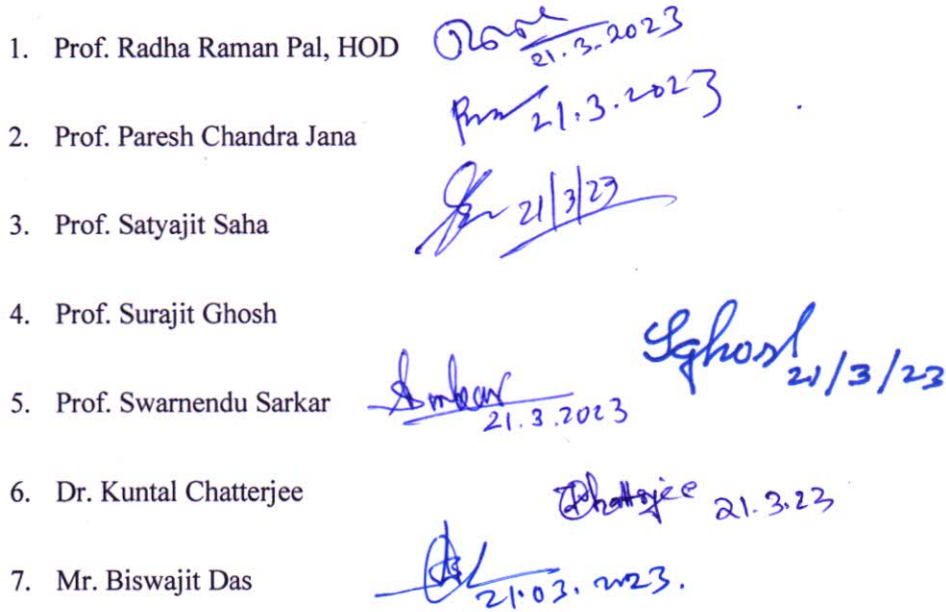 1. Prof. Radha Raman Pal, HOD 21.3.2023
2. Prof. Paresh Chandra Jana 21.3.2023
3. Prof. Satyajit Saha 21/3/23
4. Prof. Surajit Ghosh SGhosh 21/3/23
5. Prof. Swarnendu Sarkar 21.3.2023
6. Dr. Kuntal Chatterjee Chatterjee 21.3.23
7. Mr. Biswajit Das 21.03.2023.